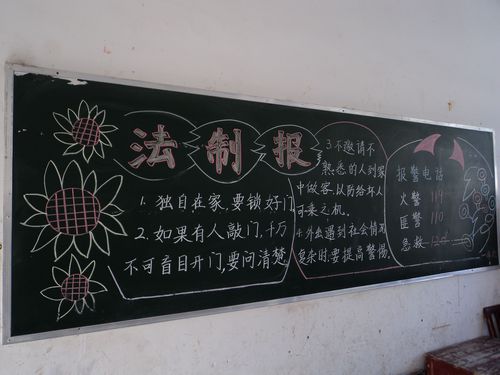 法制报
1. 独自在家,要锁好门
2. 如果有人敲门,千万
不可盲目开门,要问清楚
3 不邀请不
熟悉的人到家
中做客,以防给坏人
可乘之机.
4.外出遇到社会情况
复杂时,要提高警惕.
报警电话
火警 119
匪警 110
急救 120